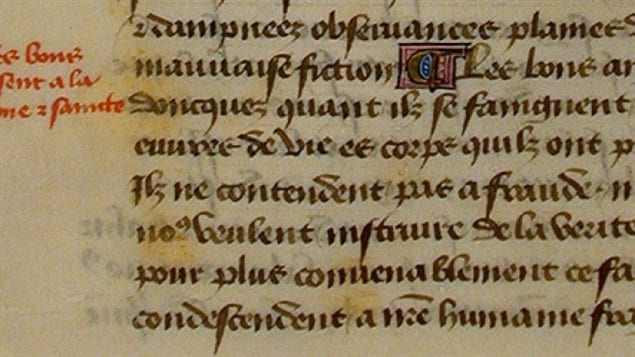 es bons
sent a la
me ⁊ saincte
⁊ dampneez obseruances plaines d
mauuaise fiction ¶ Les bons an
doncques quant ilz se faingnent
euures de vie es corps quilz ont p
Ilz ne contendent pas a fraude. n
noꝰ veulent instruire de la verite
pour plus conuenablement ce fa
condescendent a nr̃e humaine fra